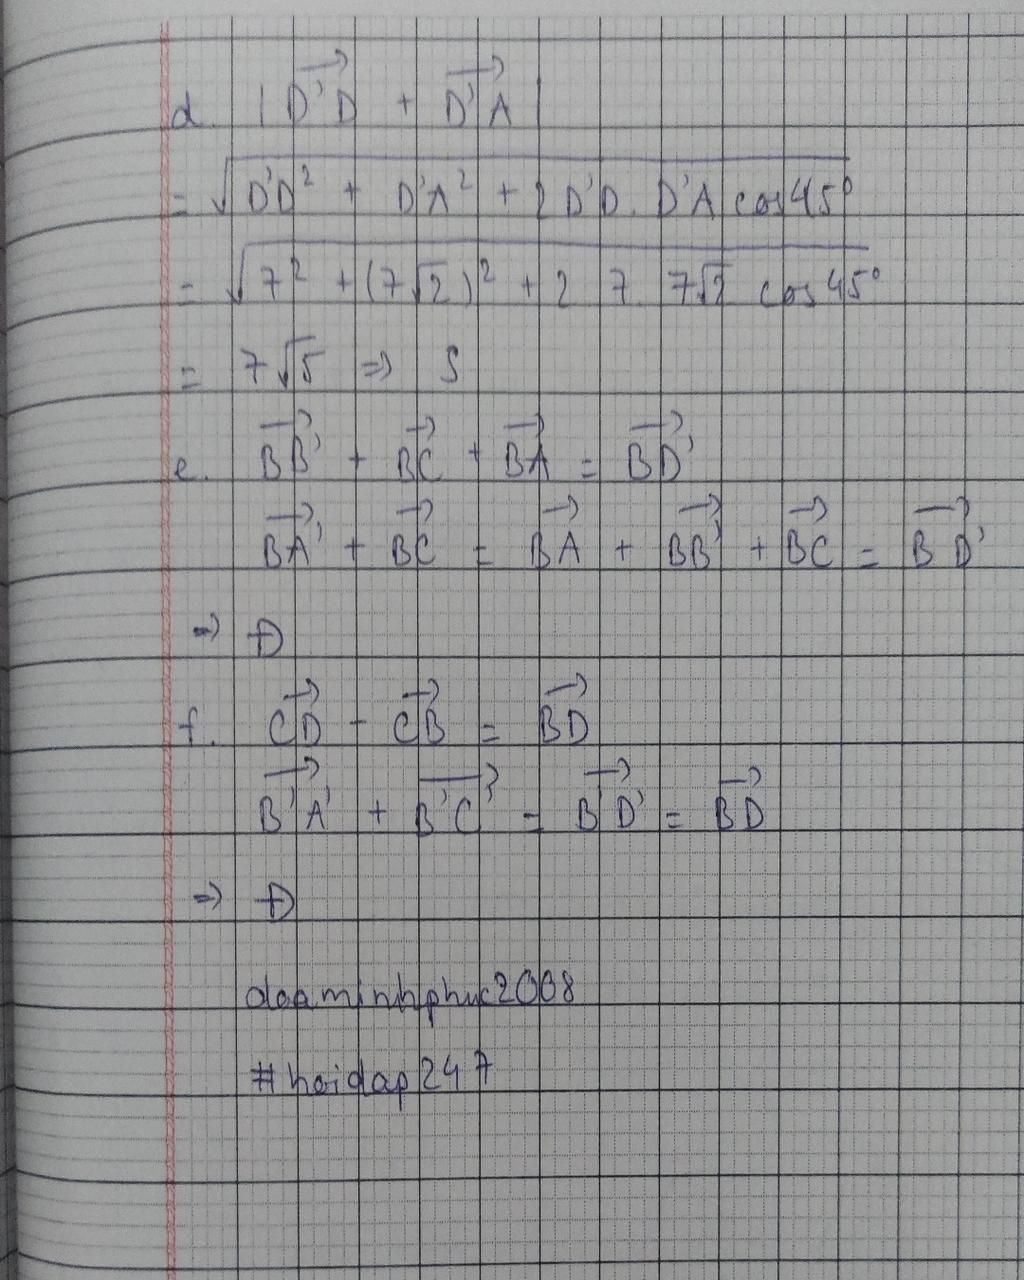 d. |D'D + D'A|
= √D'D² + D'A² + 2 D'D. D'A cos 45°
= √7² + (7√2)² + 2 7. 7√2 cos 45°
= 7√5 => S
e. BB' + BC + BA = BD'
BA' + BC = BA + BB' + BC = BD'
=> Đ
f. CD - CB = BD
B'A' + B'C' = B'D' = BD
=> Đ
daaminhphuc2008
#hoidap247